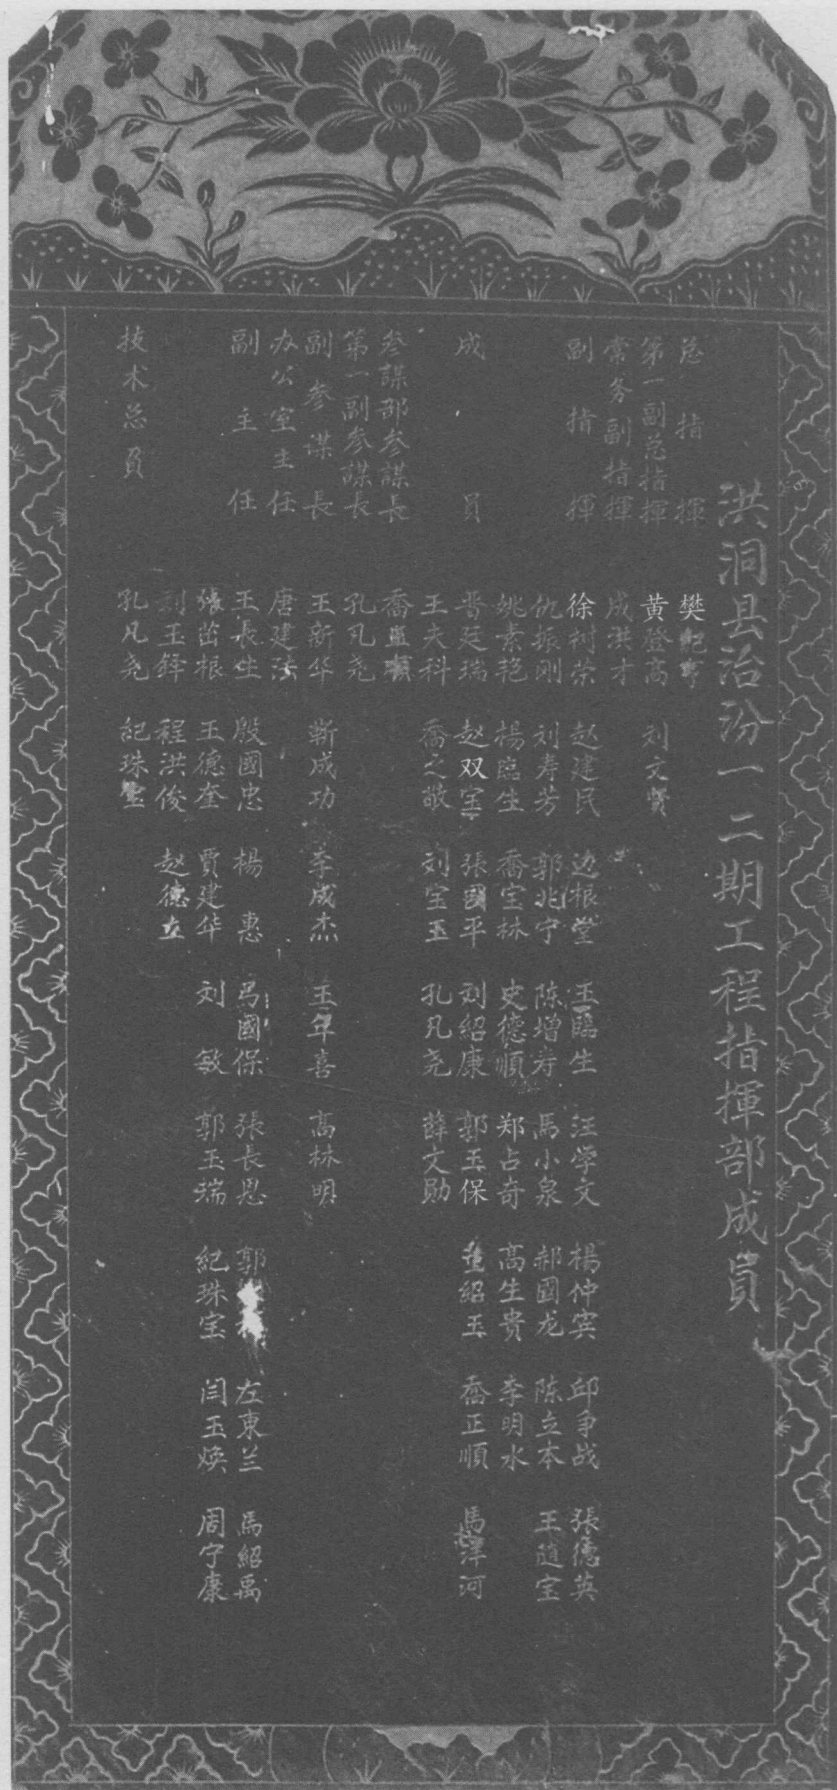 洪洞县治汾一二期工程指揮部成員
总指揮 樊纪亨
第一副总指揮 黄登高 刘文贤
常务副指揮 成洪才
副指揮 徐树荣 赵建民 边根堂 王臨生 汪学文 楊仲宾 邱争战 張德英
仇振刚 刘寿芳 郭兆宁 陈增寿 馬小泉 郝國龙 陈立本 王随宝
姚素艳 楊臨生 喬宝林 史德順 郑占奇 高生贵 李明水
成員 晋廷瑞 赵双宝 張國平 刘紹康 郭玉保 紹玉 喬正順 馬洋河
王夫科 喬之敬 刘宝玉 孔凡尧 薛文勋
参謀部参謀長 喬
第一副参謀長 孔凡尧
副参谋長 王新华 靳成功 李成杰 王年喜 高林明
办公室主任 唐建法
副主任 王長生 殷國忠 楊惠 呂國保 張長思 郭 左東兰 馬紹禹
張茁根 王德奎 賈建华 刘敏 郭玉瑞 紀珠宝 闫玉焕 周宁康
刘玉鋒 程洪俊 赵德立
技术总員 孔凡尧 紀珠宝